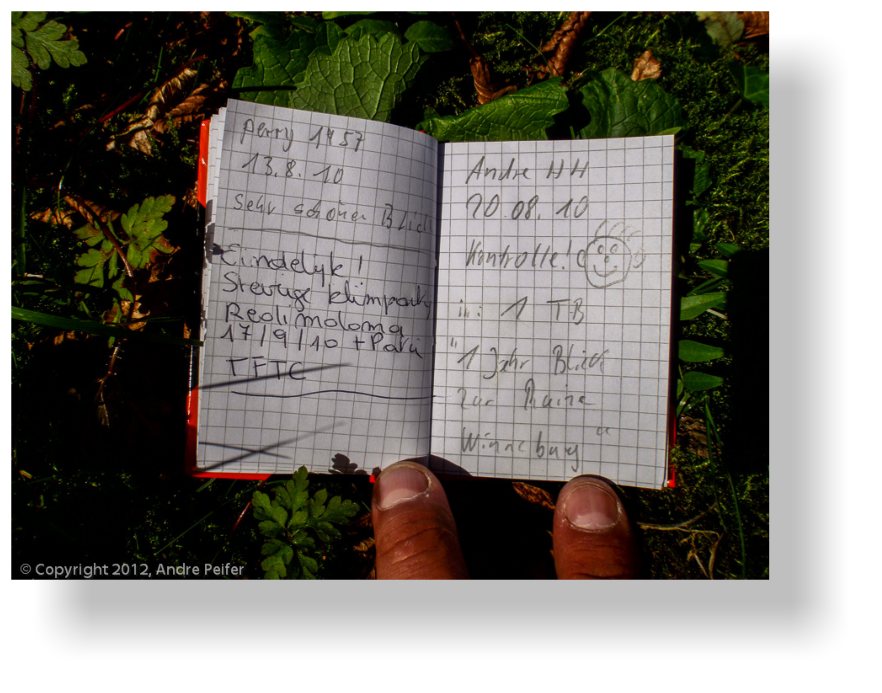 Perry 1457
13.8.10
Sehr schöner Blick
Eindelyk!
Stevige klimpartij
Redlimoloma
17/9/10 + Para
TFTC
Andre HH
20.08.10
Kontrolle!
in: 1 TB
"1 Jahr Blick
zur Ruine
Winneburg"
© Copyright 2012, Andre Peifer